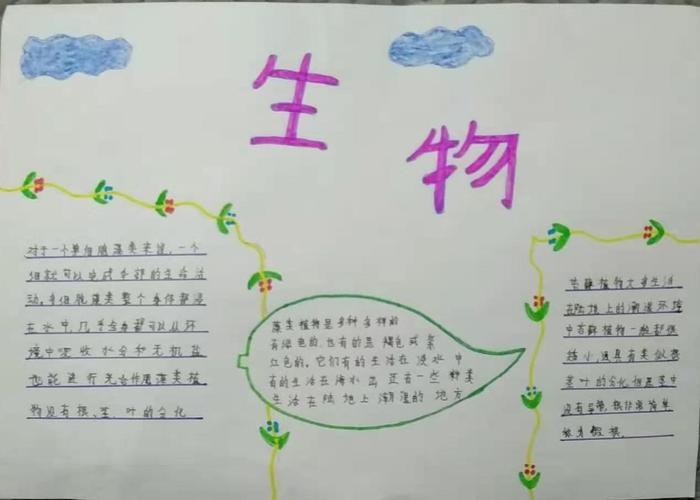 生物
对于一个单细胞藻类来说,一个
细胞就可以完成全部的生命活
动,多细胞藻类整个身体都浸
在水中,几乎全身都可以从环
境中吸收水分和无机盐
也能进行光合作用藻类植
物没有根、茎、叶的分化
藻类植物是多种多样的
有绿色的,也有的是褐色或紫
红色的,它们有的生活在淡水中
有的生活在海水 还有一些种类
生活在陆地上潮湿的地方
苔藓植物大多生活
在陆地上的潮湿环境
中苔藓植物一般都很
矮小,通具有类似茎
茎叶的分化但是茎中
没有导管,根非常简单
称为假根.